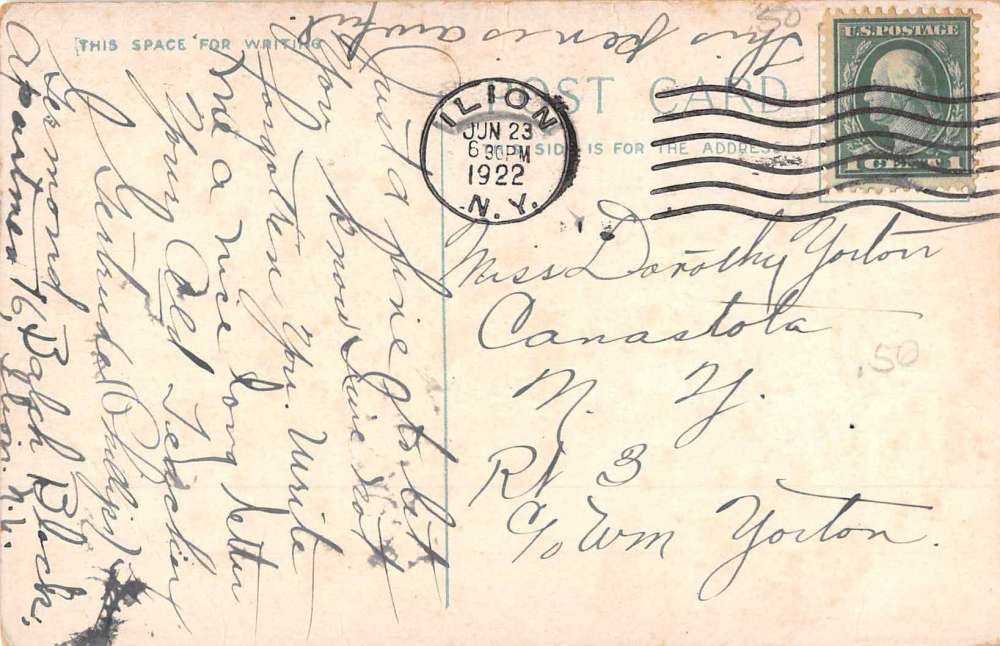 THIS SPACE FOR WRITING
POST CARD
THIS SIDE IS FOR THE ADDRESS
U.S. POSTAGE
1 CENT 1
ILION
JUN 23
6 30 PM
1922
N.Y.
.50
This pen is awful
Just a fine to let
you know I have not
forgotten you. Write
me a nice long letter
Your Old Teacher
Gertrude (Phillips)
Desmond
Apartment 16, Balch Block,
Ilion. N.Y.
Miss Dorothy Yorton
Canastota
N. Y.
Rt 3
c/o Wm Yorton.
.50